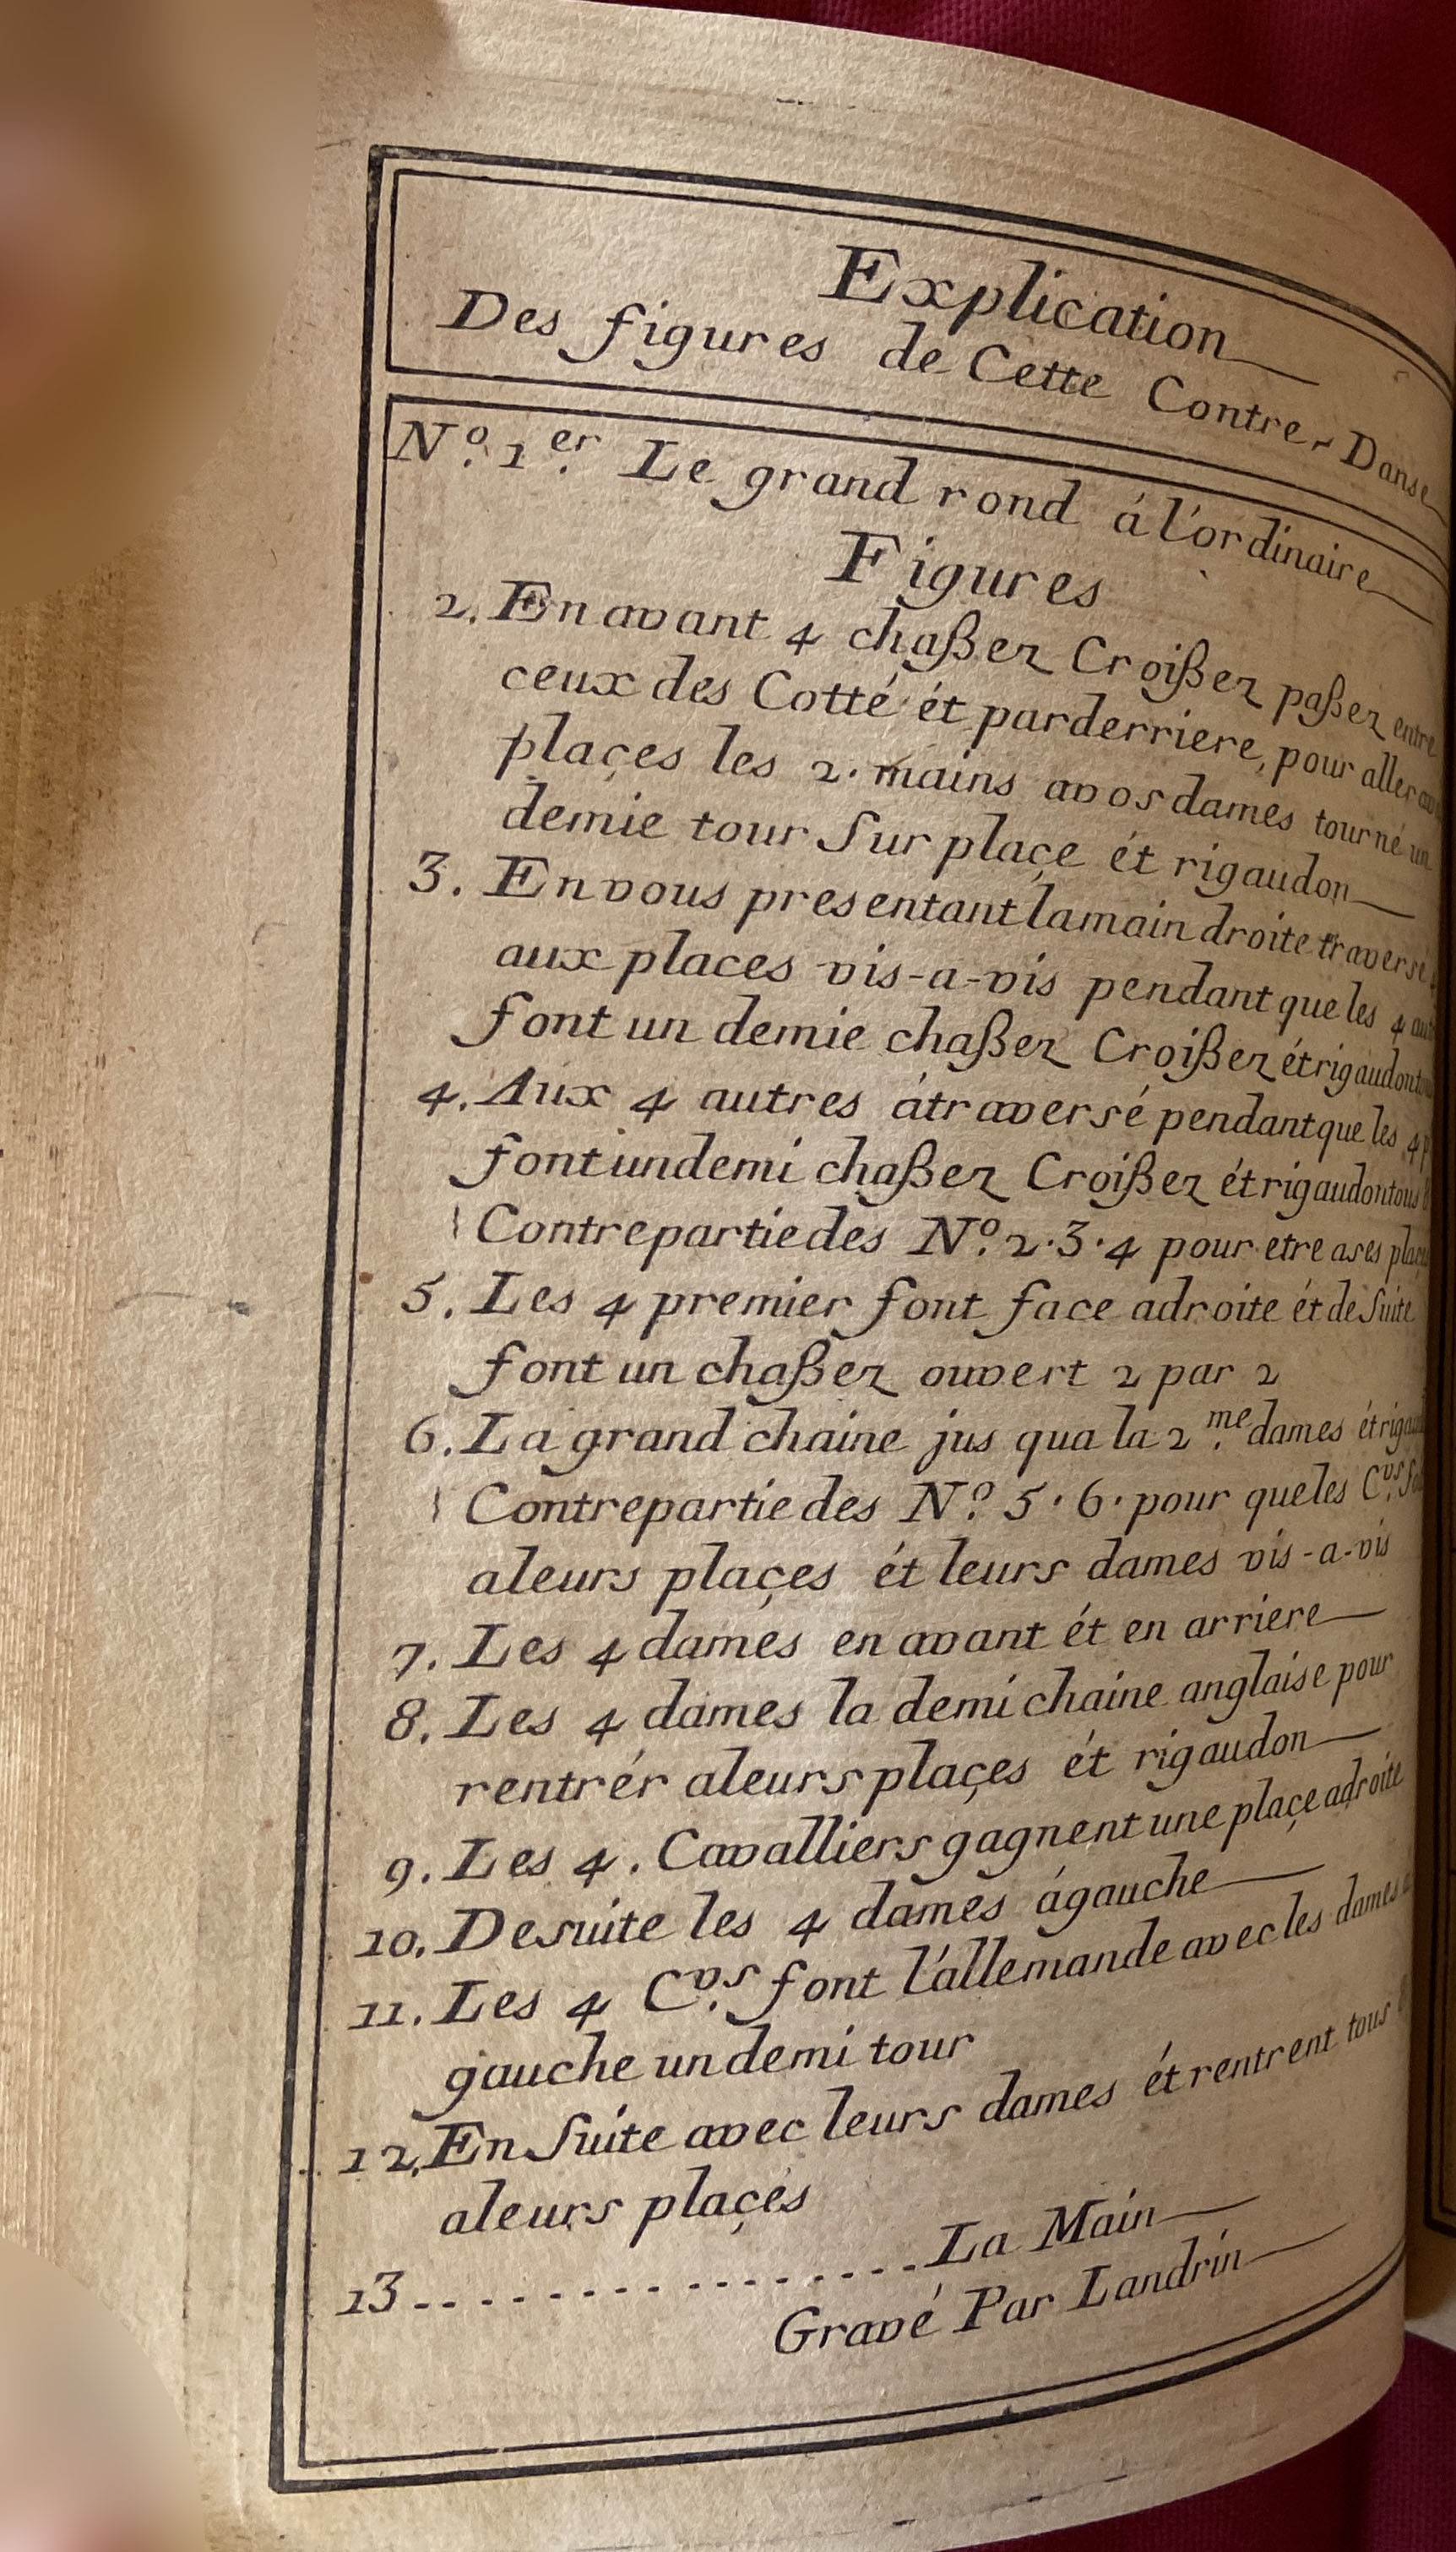 Explication
Des figures de Cette Contre-Danse
N.º 1.er Le grand rond á l'ordinaire
Figures
2. En avant 4 chaßez Croißez paßez entre
ceux des Cotté ét parderriere, pour aller
plaçes les 2. mains avos dames tourné un
demie tour Sur plaçe ét rigaudon
3. En vous presentant la main droite traversé
aux places vis-a-vis pendant que les 4
font un demie chaßez Croißez ét rigaudon
4. Aux 4 autres átraversé pendant que les 4
font un demi chaßez Croißez ét rigaudon tous
Contrepartie des N.º 2.3.4 pour etre ases
5. Les 4 premier font face adroite ét de Suite
font un chaßez ouvert 2 par 2
6. La grand chaine jus qua la 2.me dames ét
Contrepartie des N.º 5.6. pour que les C.vs
aleurs plaçes ét leurs dames vis-a-vis
7. Les 4 dames en avant ét en arriere
8. Les 4 dames la demi chaine anglaise pour
rentrér aleurs plaçes ét rigaudon
9. Les 4. Cavalliers gagnent une plaçe adroite
10. De suite les 4 dames ágauche
11. Les 4 C.vs font l'allemande avec les dames
gauche un demi tour
12. En Suite avec leurs dames ét rentrent tous
aleurs plaçes
13................La Main
Gravé Par Landrin